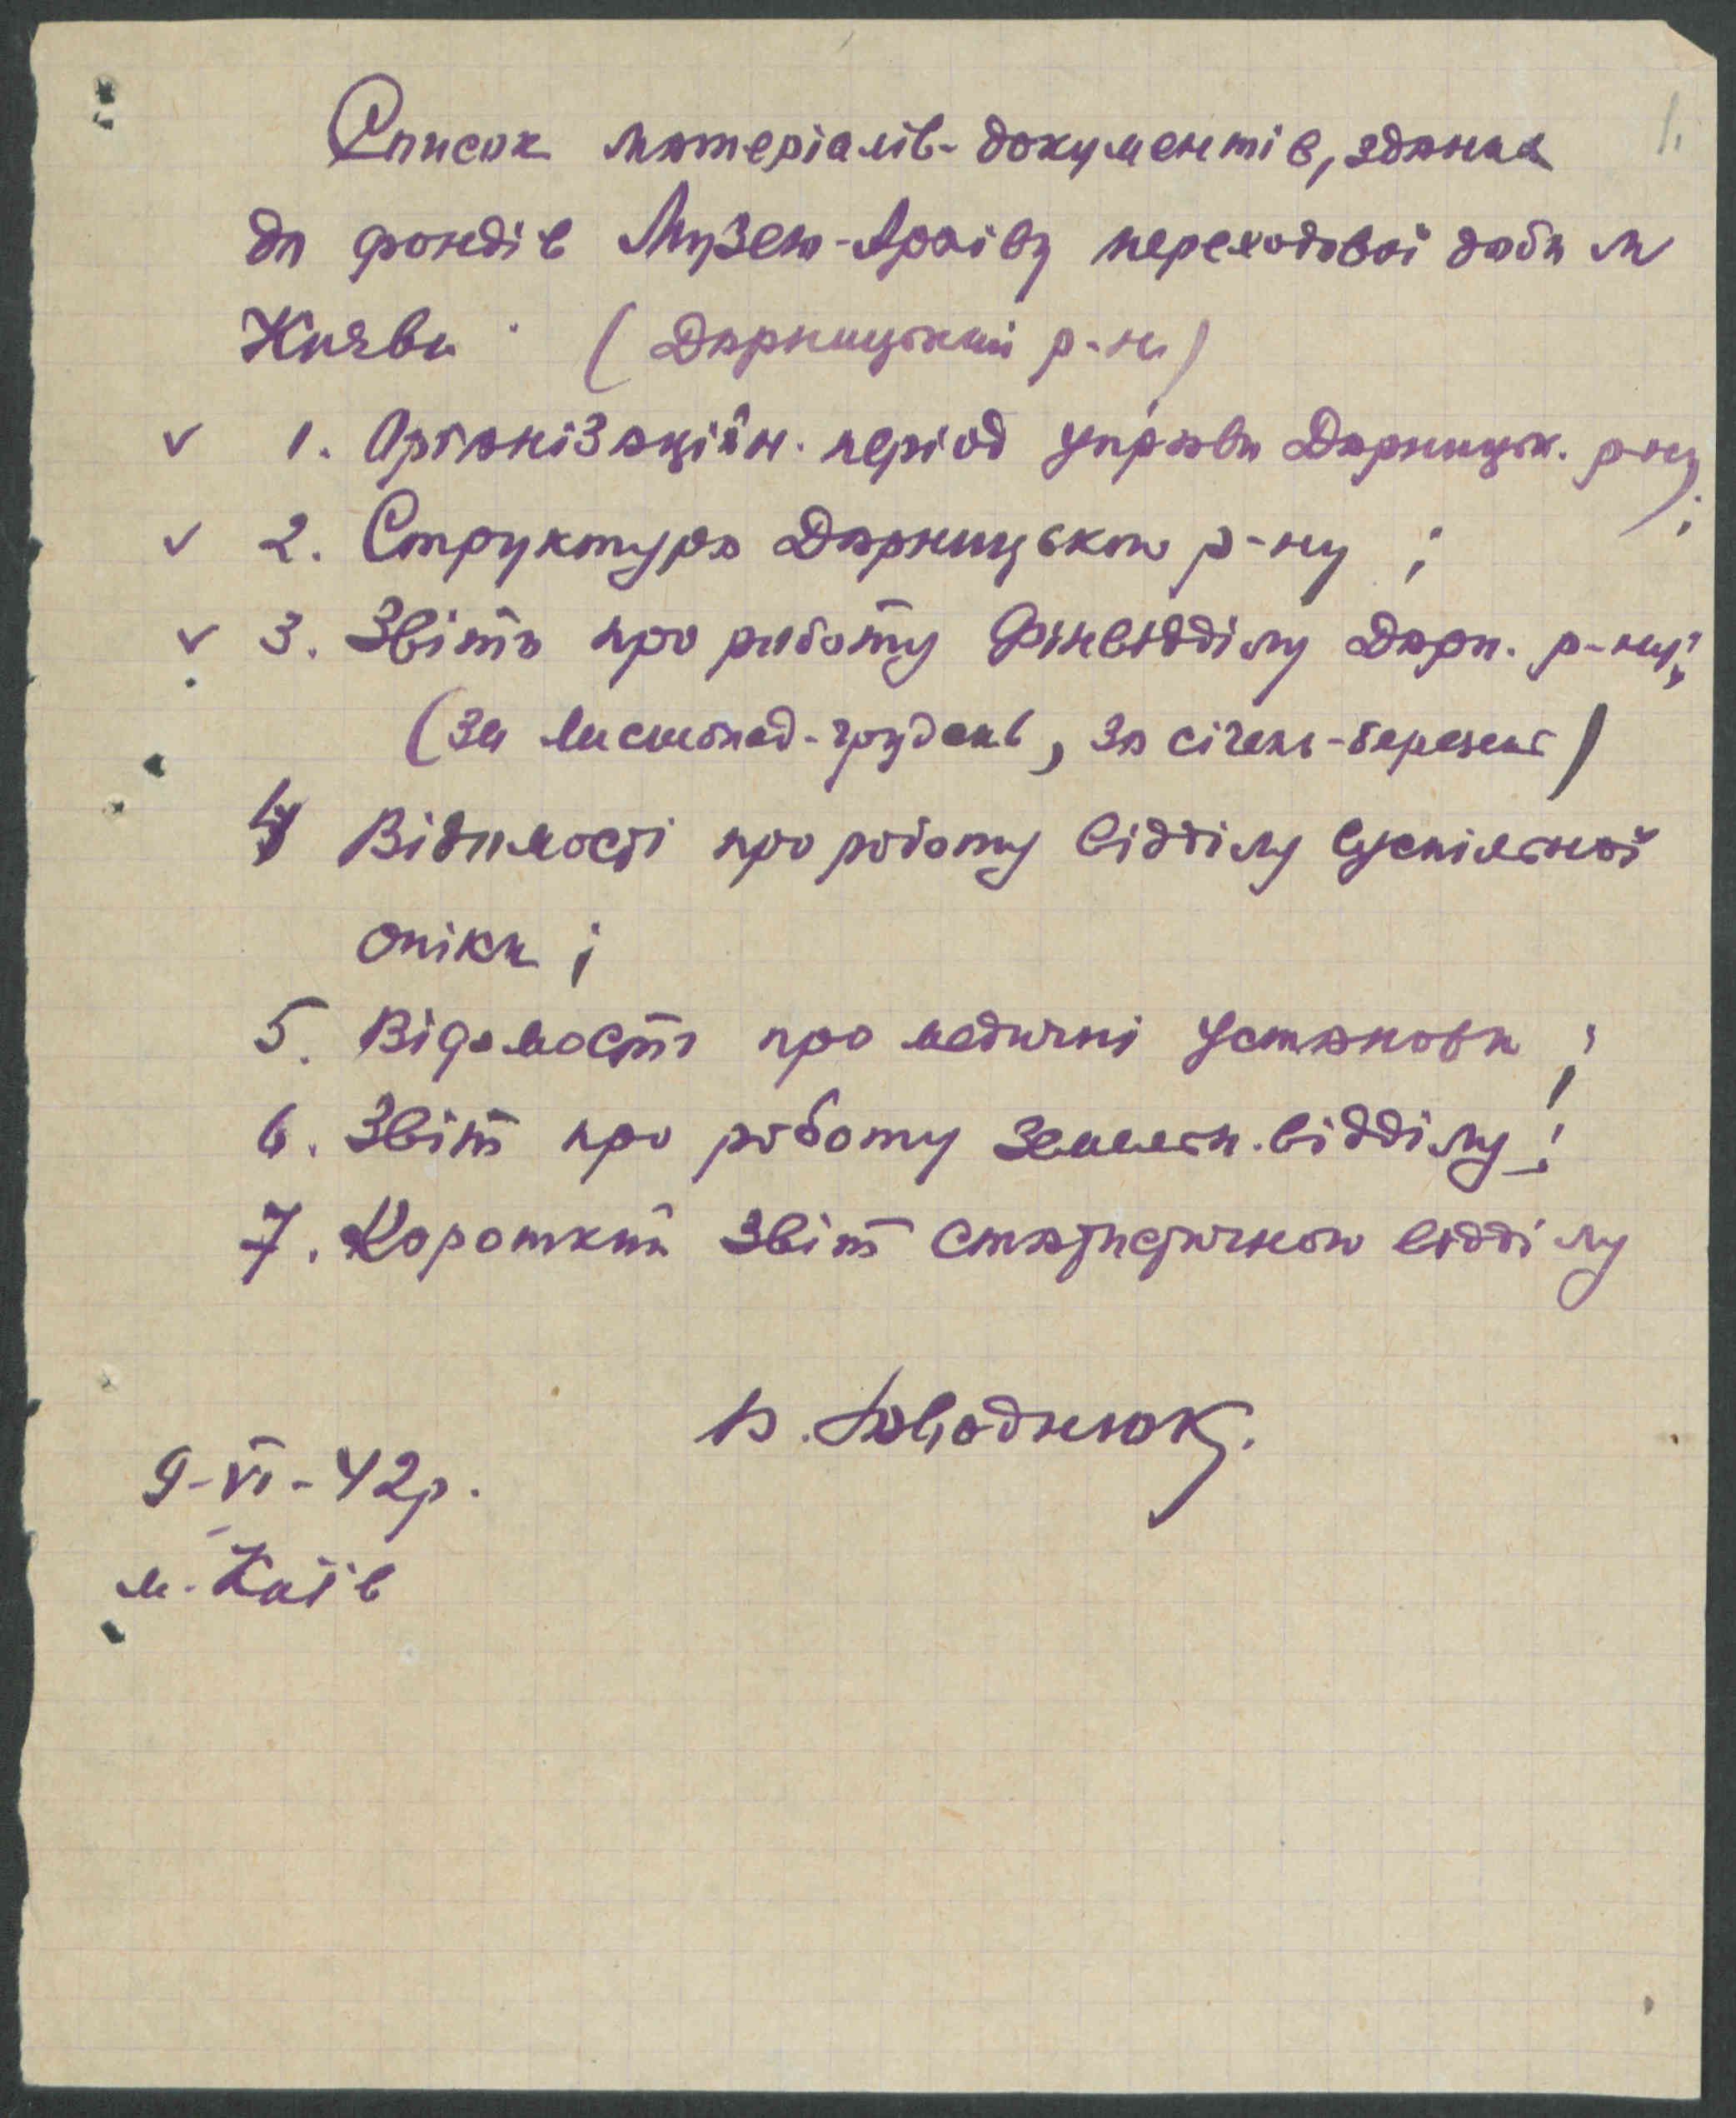 1.
Список матеріалів-документів, зданих
до фондів Музею-Архіву переходової доби м
Києва (Дарницький р-н)
✓ 1. Організаційн. період управи Дарницьк. р-ну;
✓ 2. Структура Дарницького р-ну ;
✓ 3. Звіти про роботу Фінвідділу Дарн. р-ну;
(за листопад-грудень, за січень-березень)
4 Відомості про роботу відділу суспільної
опіки ;
5. Відомості про медичні установи ;
6. Звіт про роботу земельн. відділу;
7. Короткий звіт статистичного відділу
9-VI-42р.
м. Київ